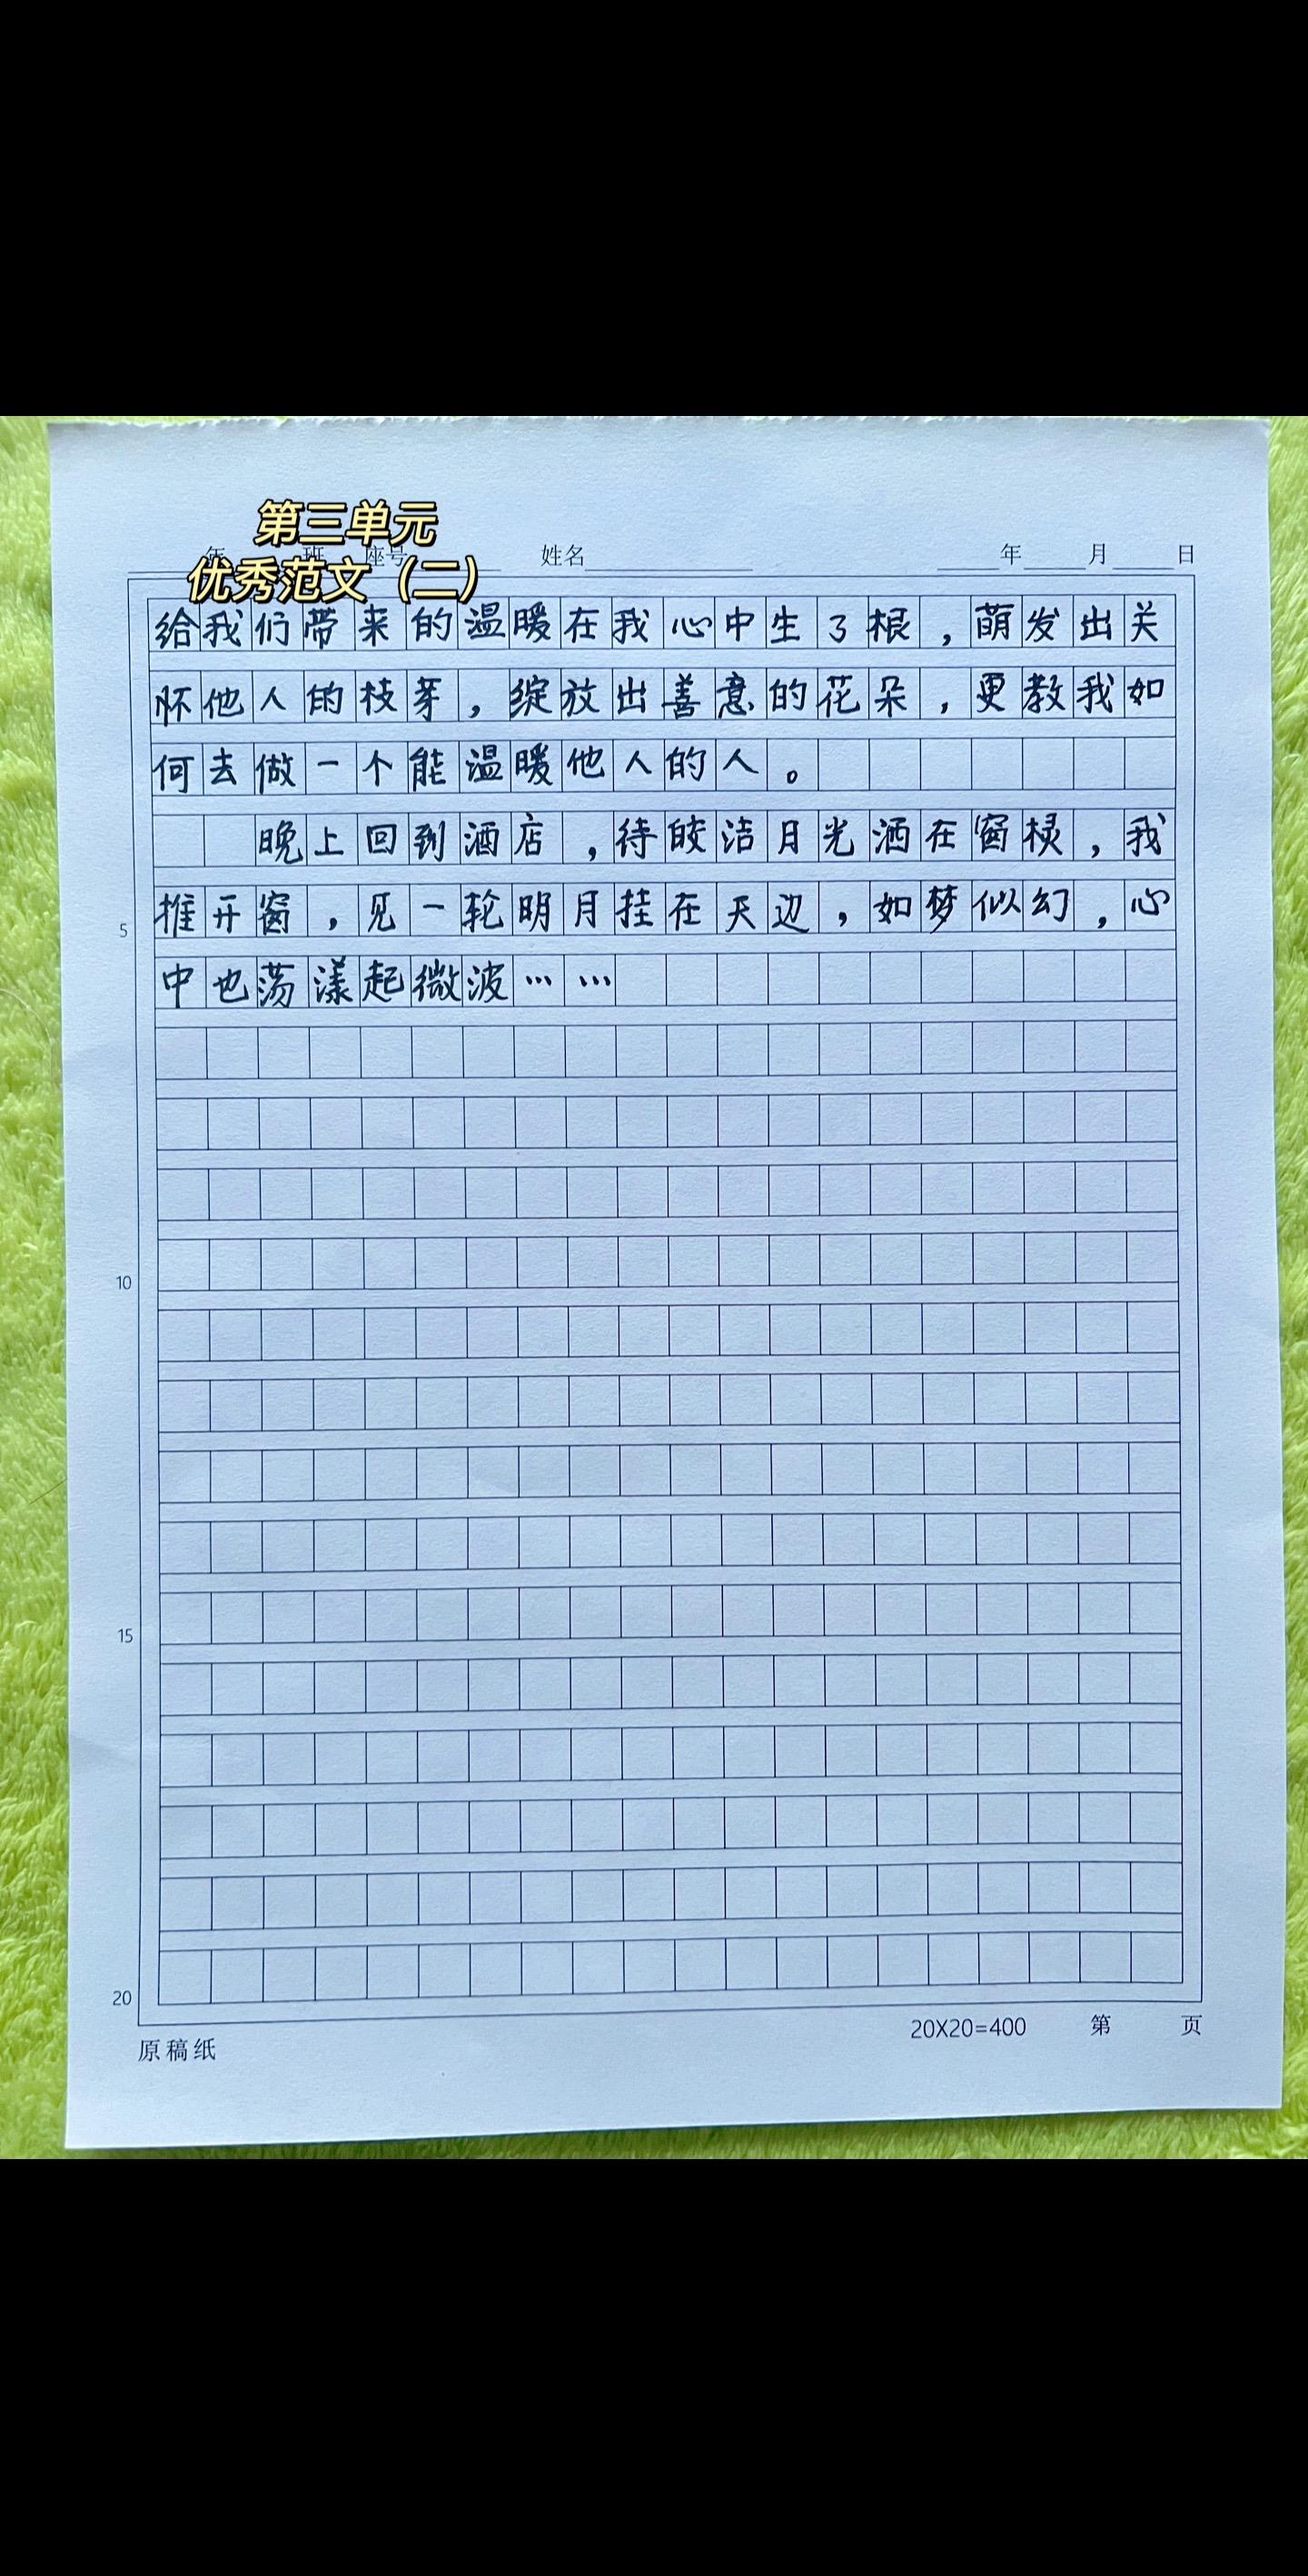 第三单元
优秀范文（二）
年 班 座号 姓名 年 月 日
给我们带来的温暖在我心中生了根，萌发出关
怀他人的枝芽，绽放出善意的花朵，更教我如
何去做一个能温暖他人的人。
晚上回到酒店，待皎洁月光洒在窗棂，我
5
推开窗，见一轮明月挂在天边，如梦似幻，心
中也荡漾起微波……
10
15
20
原稿纸 20X20=400 第 页